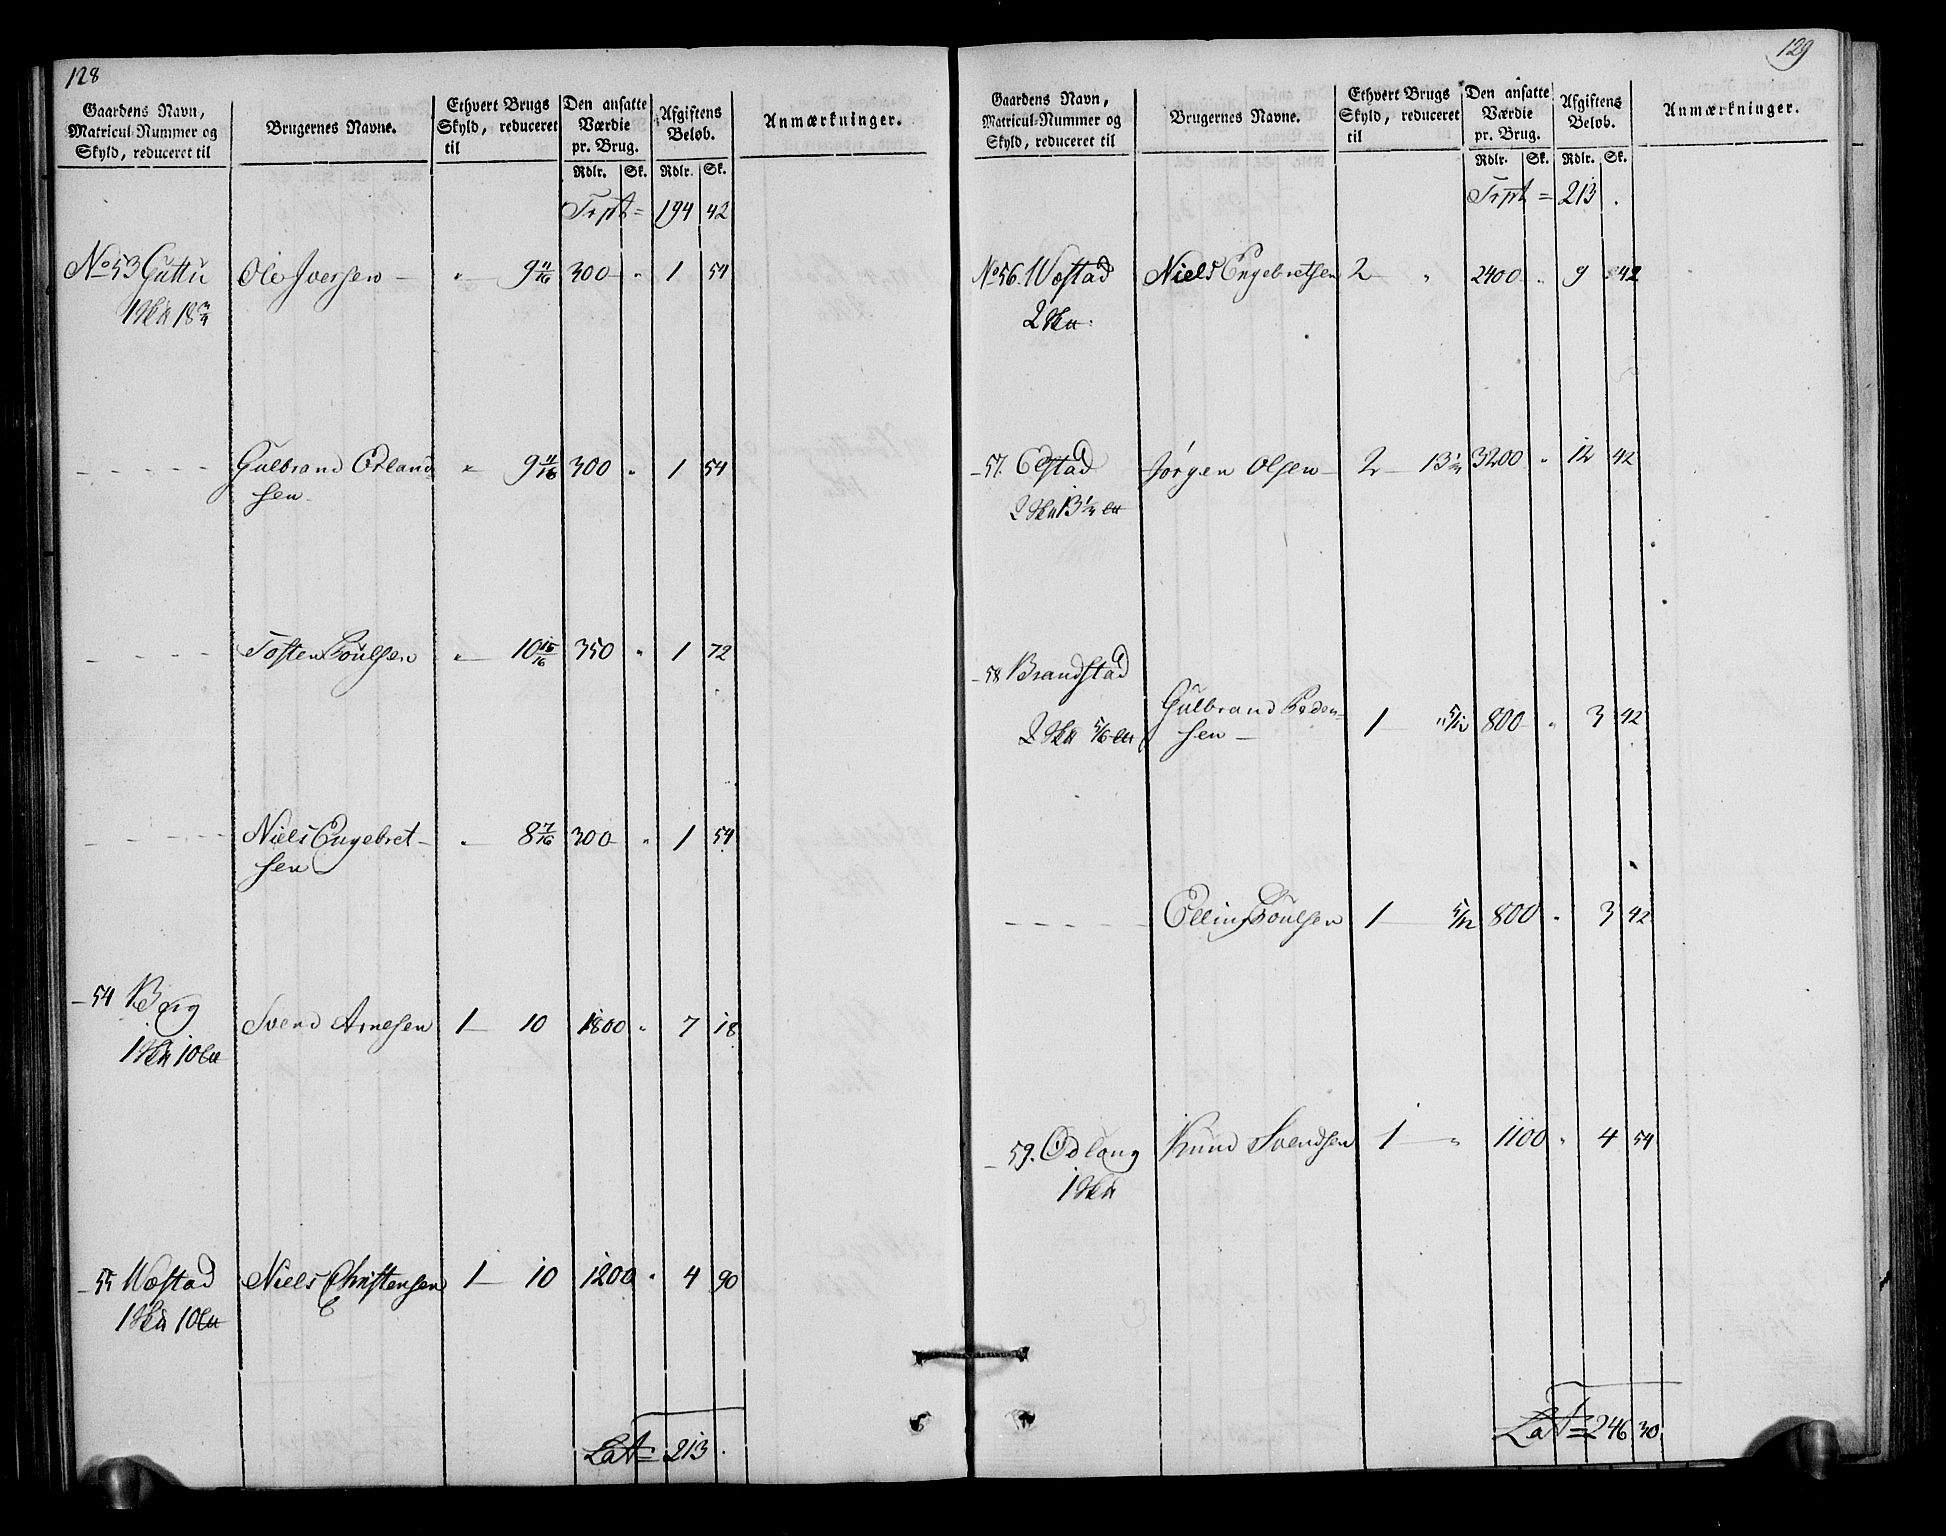 128
Gaardens Navn, Matricul-Nummer og Skyld, reduceret til | Brugernes Navne. | Ethvert Brugs Skyld, reduceret til | Den ansatte Værdie pr. Brug. Rdlr. Sk. | Afgiftens Beløb. Rdlr. Sk. | Anmærkninger.
Trpt = 194 42
No 53 Guttu Ole Iversen – " 9 11/16 300 " 1 54
1 18 3/4
– – – – – Gulbrand Erland- " 9 11/16 300 " 1 54
sen –
– – – – – Tosten Poulsen " 10 15/16 350 " 1 72
– – – – – Niels Engebret- " 8 7/16 300 " 1 54
sen
– 54 Berg Svend Arnesen 1 – 10 1800 " 7 18
1 10
– 55 Westad Niels Christensen 1 – 10 1200 " 4 90
1 10
Lat = 213 .
129
Gaardens Navn, Matricul-Nummer og Skyld, reduceret til | Brugernes Navne. | Ethvert Brugs Skyld, reduceret til | Den ansatte Værdie pr. Brug. Rdlr. Sk. | Afgiftens Beløb. Rdlr. Sk. | Anmærkninger.
Trpt = 213 .
No 56. Westad Niels Engebretsen 2 – " 2400 " 9 42
2
– 57. Elstad Jørgen Olsen – 2 – 13 1/4 3200 " 12 42
2 13 1/4
– 58 Brandstad
Gulbrand Peder- 1 " 5/12 800 " 3 42
2 5/6 sen –
– – – – – Elling Poulsen 1 – 5/12 800 " 3 42
– 59. Odlong Knud Svendsen 1 – " 1100 " 4 54
1
Lat = 246 30